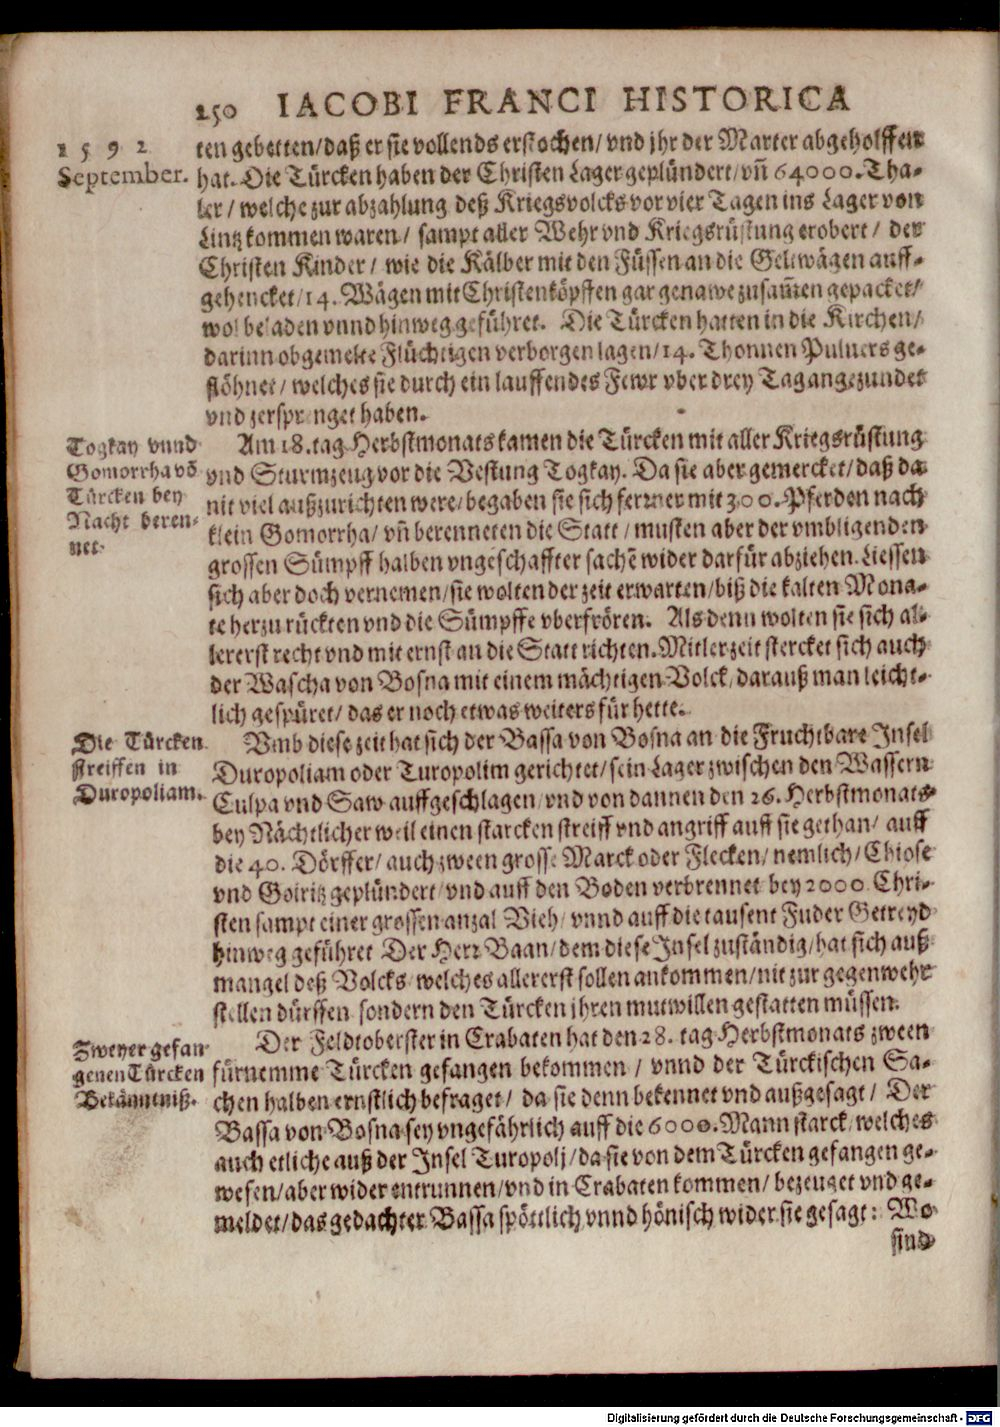 250 IACOBI FRANCI HISTORICA
1592
September.
ten gebetten/daß er sie vollends erstochen/vnd jhr der Marter abgeholffen
hat. Die Türcken haben der Christen Lager geplündert/vñ 64000. Tha-
ler/welche zur abzahlung deß Kriegsvolcks vor vier Tagen ins Lager von
Lintz kommen waren/ sampt aller Wehr vnd Kriegsrüstung erobert/ der
Christen Kinder/ wie die Kälber mit den Füssen an die Geltwägen auff-
gehencket/14. Wägen mit Christenköpffen gar genawe zusam̃en gepacket/
wol beladen vnnd hinweg geführet. Die Türcken hatten in die Kirchen/
darinn obgemelte Flüchtigen verborgen lagen/14. Thonnen Puluers ge-
stöhnet/welches sie durch ein lauffendes Fewr vber drey Tag angezundet
vnd zersprenget haben.
Togkay vnnd
Gomorrha võ
Türcken bey
Nacht beren-
net.
Am 18. tag Herbstmonats kamen die Türcken mit aller Kriegsrüstung
vnd Sturmzeug vor die Vestung Togkay. Da sie aber gemercket/daß da
nit viel außzurichten were/begaben sie sich ferrner mit 300. Pferden nach
klein Gomorrha/ vñ berenneten die Statt/musten aber der vmbligenden
grossen Sümpff halben vngeschaffter sachẽ wider darfür abziehen. Liessen
sich aber doch vernemen/sie wolten der zeit erwarten/biß die kalten Mona-
te herzu rückten vnd die Sümpffe vberfrören. Als denn wolten sie sich al-
lererst recht vnd mit ernst an die Statt richten. Mitler zeit stercket sich auch
der Wascha von Bosna mit einem mächtigen Volck/darauß man leicht-
lich gespüret/ das er noch etwas weiters für hette.
Die Türcken
streiffen in
Duropoliam.
Vmb diese zeit hat sich der Bassa von Bosna an die Fruchtbare Insel
Duropoliam oder Turopolim gerichtet/sein Lager zwischen den Wassern
Culpa vnd Saw auffgeschlagen/vnd von dannen den 26. Herbstmonats
bey Nächtlicher weil einen starcken streiff vnd angriff auff sie gethan/ auff
die 40. Dörffer/auch zween grosse Marck oder Flecken/nemlich/Chiose
vnd Goiritz geplündert/vnd auff den Boden verbrennet bey 2000 Chri-
sten sampt einer grossen anzal Vieh/vnnd auff die tausent Fuder Getreyd
hinweg geführet Der Herr Baan/dem diese Insel zuständig/hat sich auß
mangel deß Volcks/welches allererst sollen ankommen/nit zur gegenwehr
stellen dürffen/sondern den Türcken jhren mutwillen gestatten müssen.
Zweyer gefan-
genen Türcken
Bekänntniß.
Der Feldtoberster in Crabaten hat den 28. tag Herbstmonats zween
fürnemme Türcken gefangen bekommen/ vnnd der Türckischen Sa-
chen halben ernstlich befraget/ da sie denn bekennet vnd außgesagt/ Der
Bassa von Bosna sey vngefährlich auff die 6000. Mann starck/welches
auch etliche auß der Insel Turopolj/da sie von dem Türcken gefangen ge-
wesen/aber wider entrunnen/vnd in Crabaten kommen/bezeuget vnd ge-
meldet/das gedachter Bassa spöttlich vnnd hönisch wider sie gesagt: Wo
sind
Digitalisierung gefördert durch die Deutsche Forschungsgemeinschaft - DFG